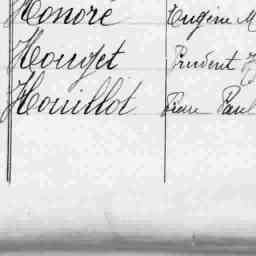 Honoré Eugène M
Houget Prudent
Houillot Pierre Paul